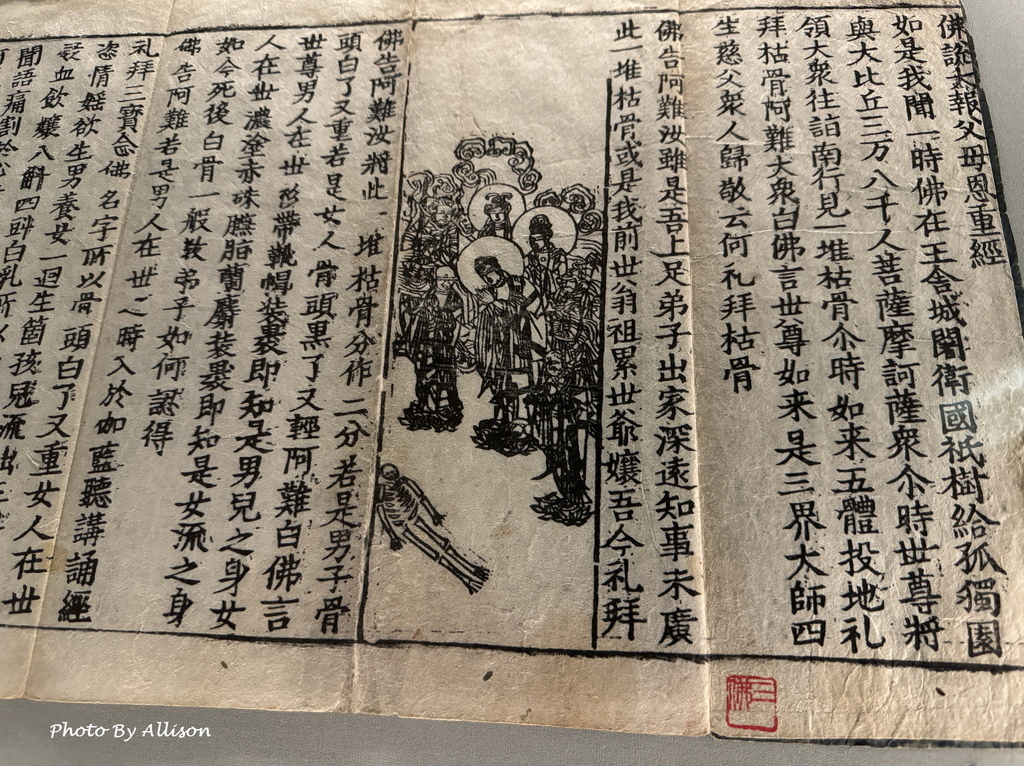 佛說大報父母恩重經
如是我聞一時佛在王舍城闍衛國祇樹給孤獨園
與大比丘三万八千人菩薩摩訶薩衆尒時世尊將
領大衆往詣南行見一堆枯骨尒時如来五體投地礼
拜枯骨阿難大衆白佛言世尊如来是三界大師四
生慈父衆人歸敬云何礼拜枯骨
佛告阿難汝雖是吾上足弟子出家深遠知事未廣
此一堆枯骨或是我前世翁祖累世爺孃吾今礼拜
佛告阿難汝將此一堆枯骨分作二分若是男子骨
頭白了又重若是女人骨頭黑了又輕阿難白佛言
世尊男人在世衫帶靴帽裝裹即知是男兒之身女
人在世濃塗赤硃臙脂蘭麝裝裹即知是女流之身
如今死後白骨一般教弟子如何認得
佛告阿難若是男人在世之時入於伽藍聽講誦經
礼拜三寳念佛名字所以骨頭白了又重女人在世
恣情婬欲生男養女一迴生箇孩兒流出三
血飲孃八斛四㪷白乳所以
聞語痛割於心
三佛
Photo By Allison